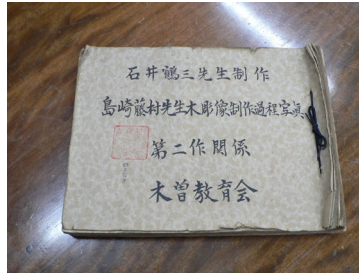 石井鶴三先生制作
島崎藤村先生木彫像制作過程写真
第二作関係
木曽教育会